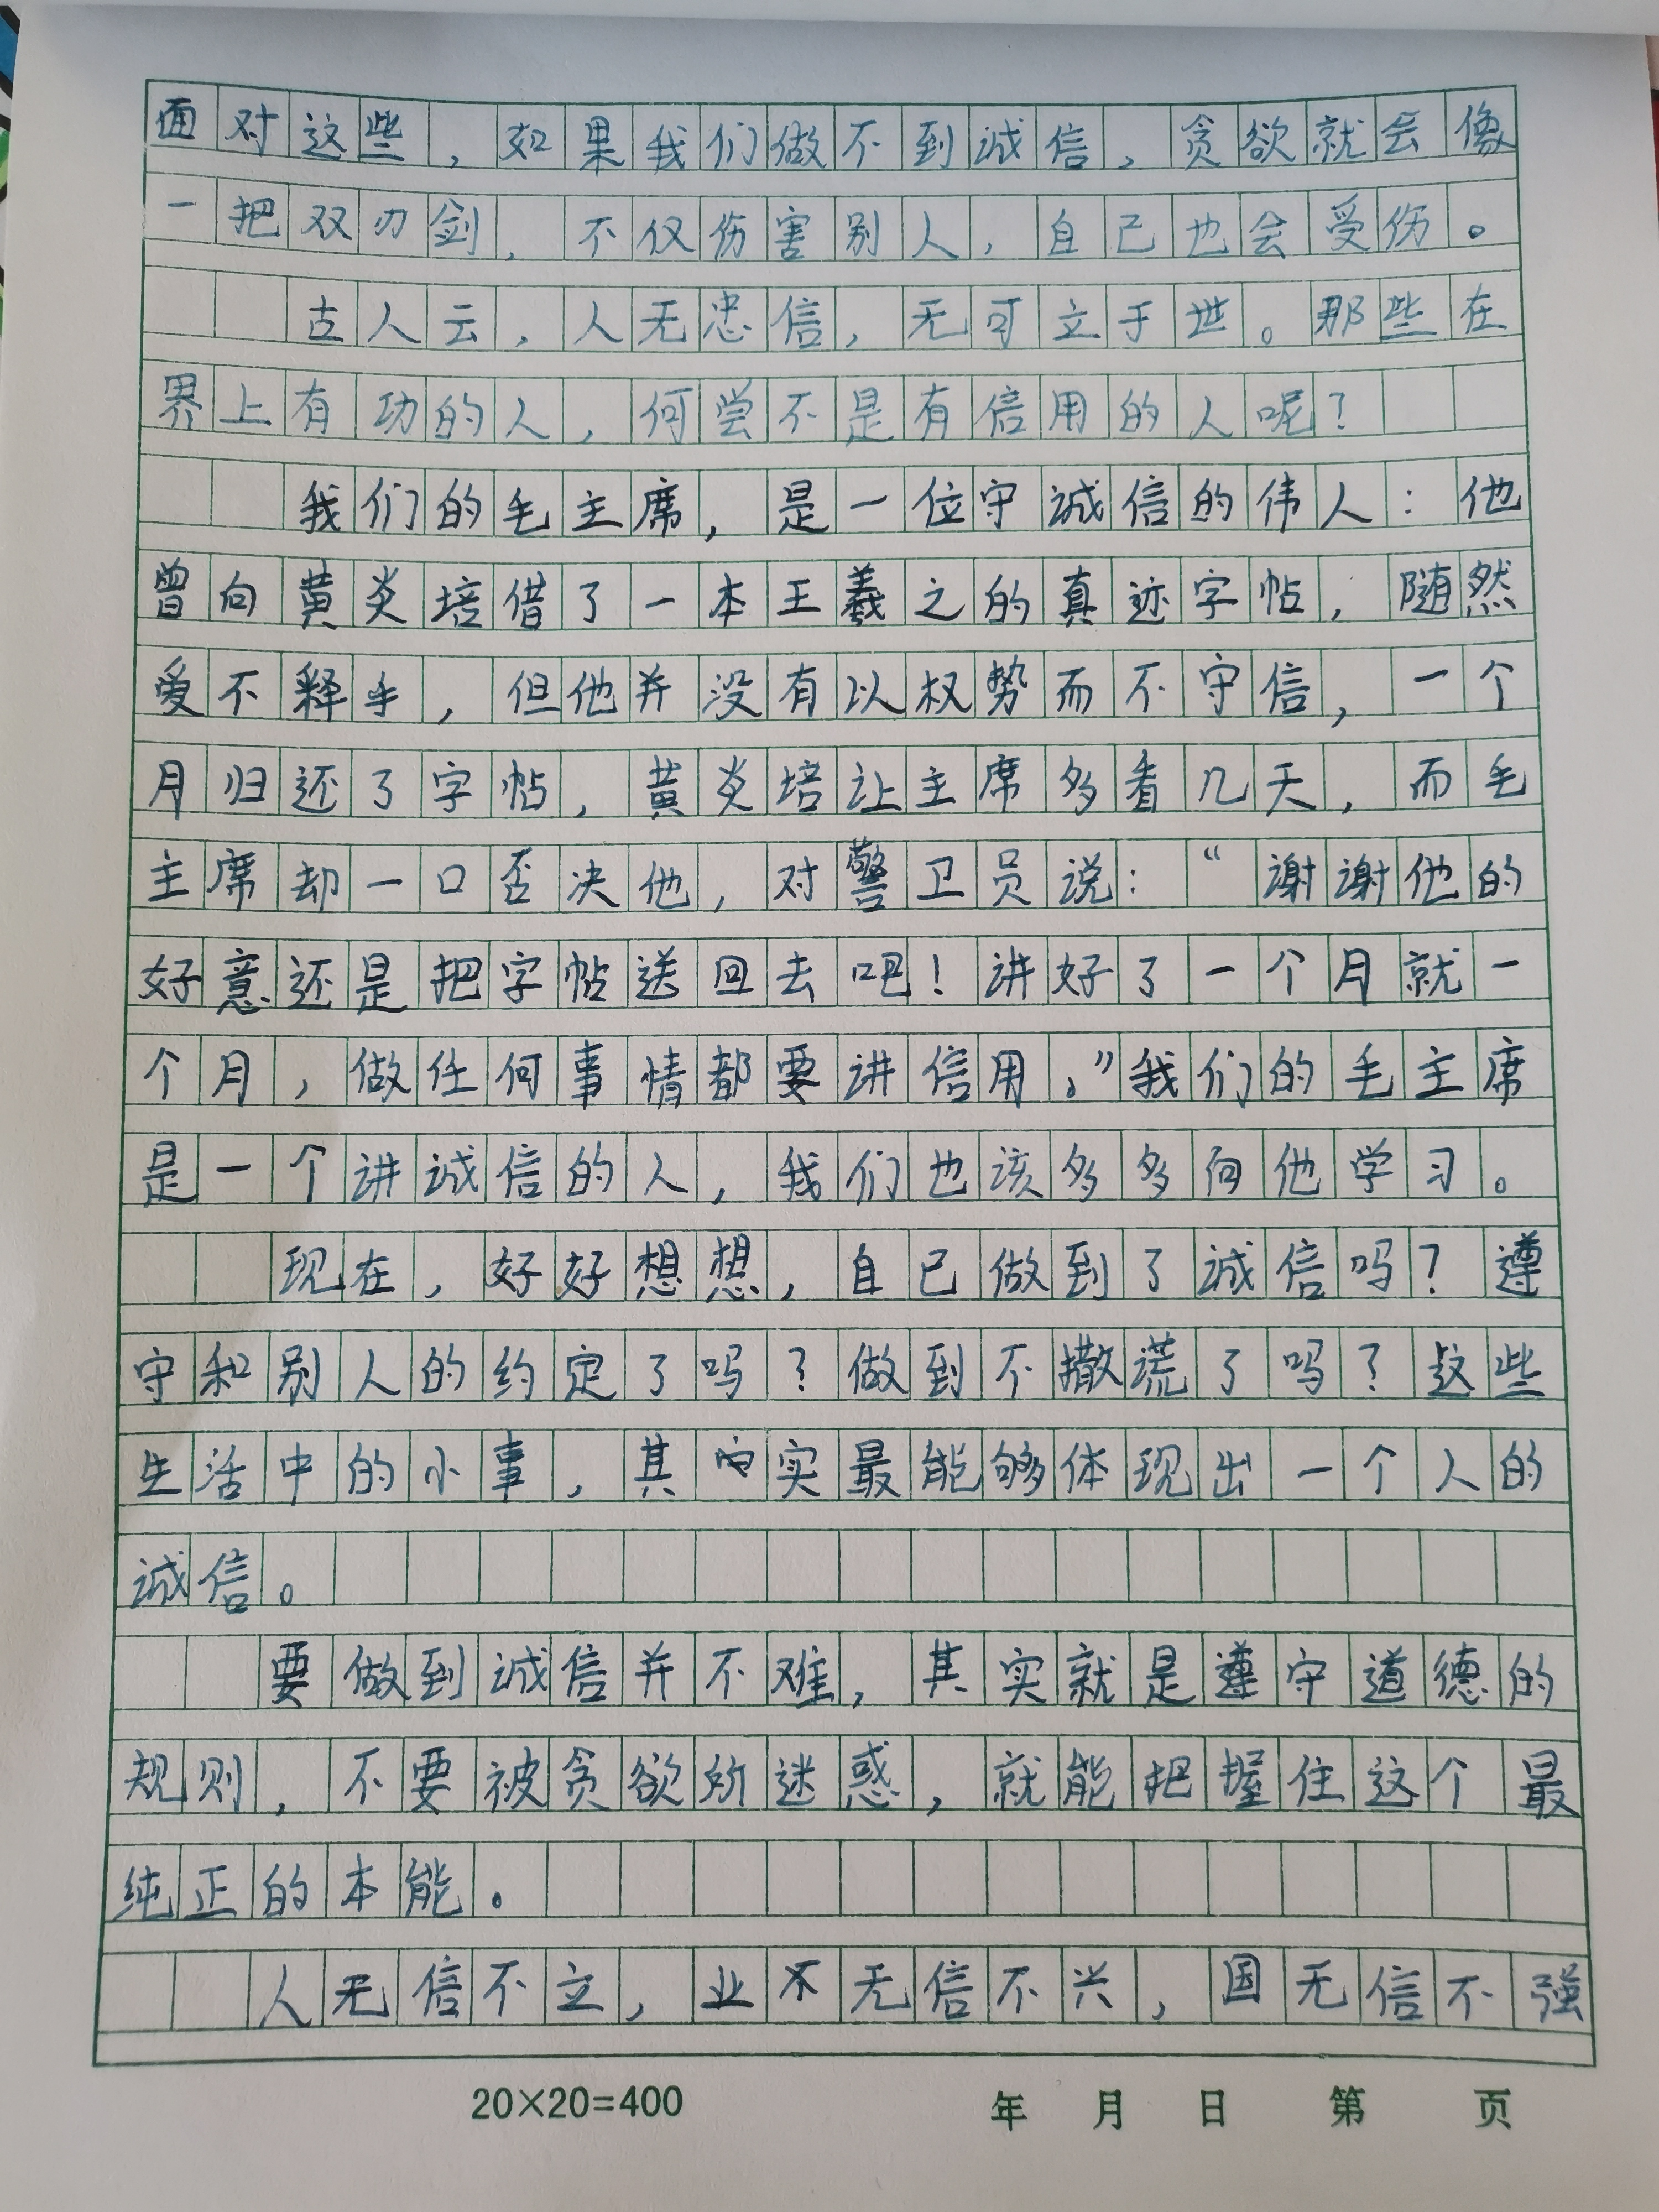 面对这些，如果我们做不到诚信，贪欲就会像
一把双刃剑，不仅伤害别人，自己也会受伤。
古人云，人无忠信，无可立于世。那些在
界上有功的人，何尝不是有信用的人呢？
我们的毛主席，是一位守诚信的伟人：他
曾向黄炎培借了一本王羲之的真迹字帖，随然
爱不释手，但他并没有以权势而不守信，一个
月归还了字帖，黄炎培让主席多看几天，而毛
主席却一口否决他，对警卫员说：“谢谢他的
好意还是把字帖送回去吧！讲好了一个月就一
个月，做任何事情都要讲信用。”我们的毛主席
是一个讲诚信的人，我们也该多多向他学习。
现在，好好想想，自己做到了诚信吗？遵
守和别人的约定了吗？做到不撒谎了吗？这些
生活中的小事，其实最能够体现出一个人的
诚信。
要做到诚信并不难，其实就是遵守道德的
规则，不要被贪欲所迷惑，就能把握住这个最
纯正的本能。
人无信不立，业不无信不兴，国无信不强
20×20=400 年 月 日 第 页